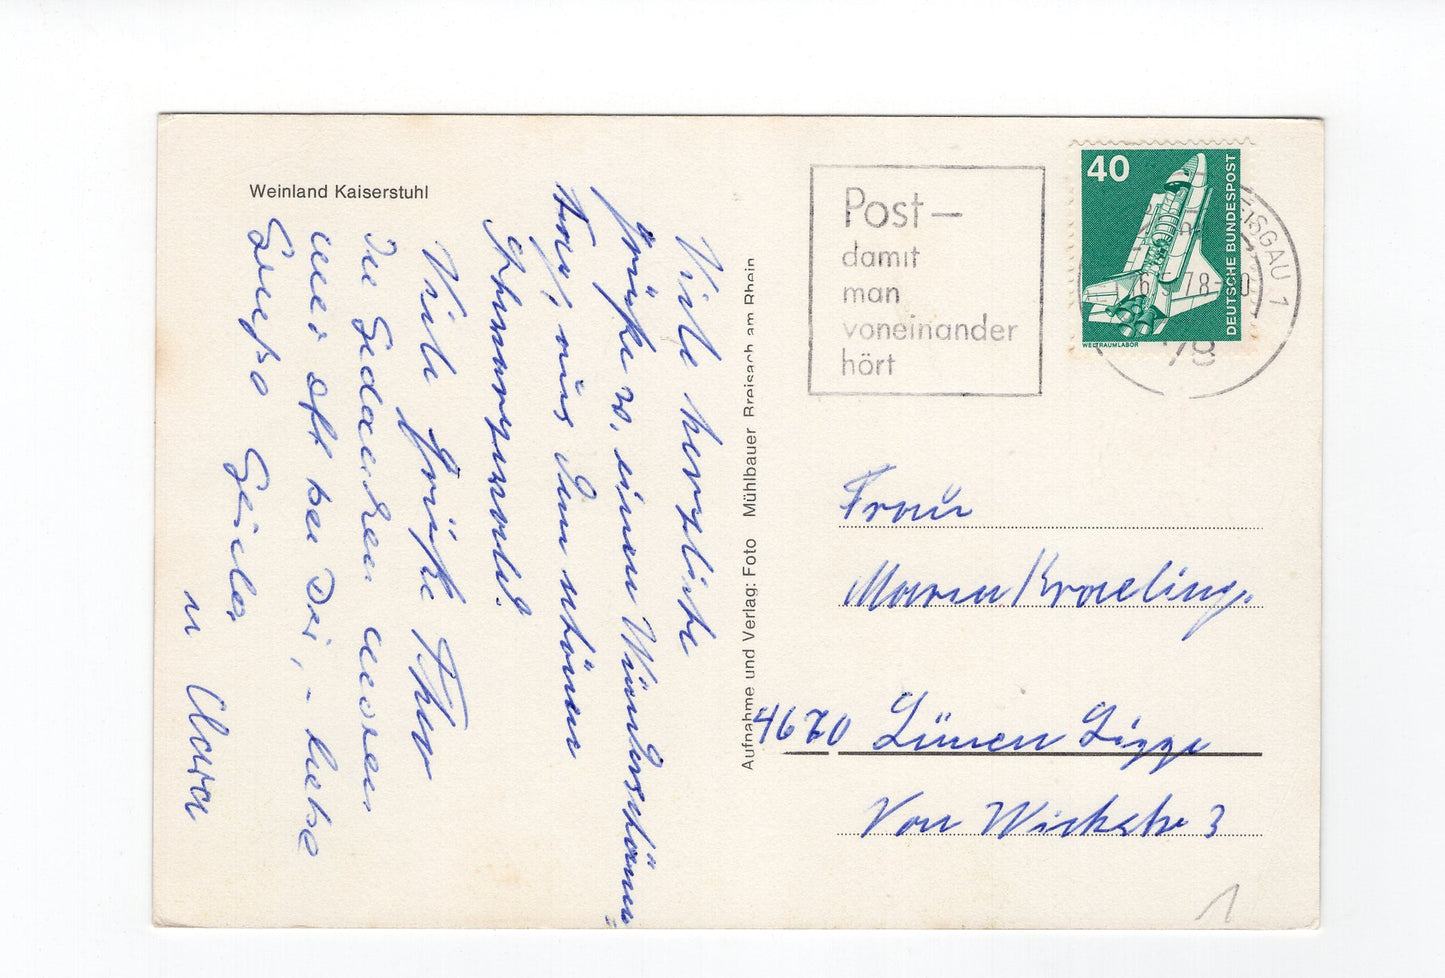 Weinland Kaiserstuhl
Viele herzliche
Grüße v. einem Wunderschönen
Tag, aus dem schönen
Schwarzwald.
Viele Grüße
In Gedanken waren
wir oft bei Dir, – liebe
Grüße Gisela
u Clara
Aufnahme und Verlag: Foto Mühlbauer Breisach am Rhein
Post –
damit
man
voneinander
hört
40
DEUTSCHE BUNDESPOST
WELTRAUMLABOR
ISGAU 1
78
Frau
Maria Kraeling.
4670 Lünen Lippe
Von Wickstr 3
1